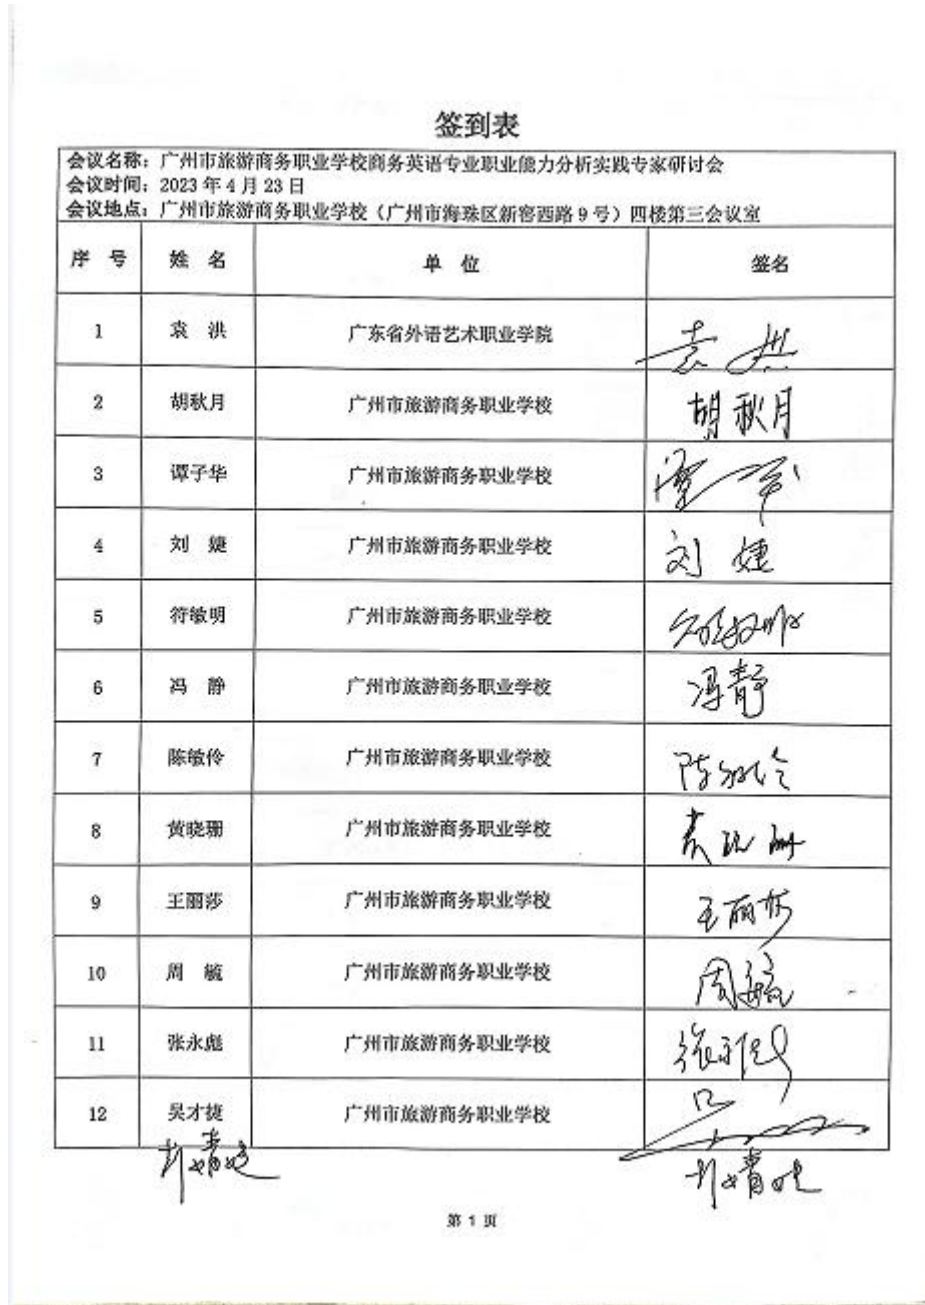 签到表
会议名称：广州市旅游商务职业学校商务英语专业职业能力分析实践专家研讨会
会议时间：2023 年 4 月 23 日
会议地点：广州市旅游商务职业学校（广州市海珠区新窖西路 9 号）四楼第三会议室
序 号 姓 名 单 位 签名
1 袁 洪 广东省外语艺术职业学院 袁 洪
2 胡秋月 广州市旅游商务职业学校 胡秋月
3 谭子华 广州市旅游商务职业学校
4 刘 婕 广州市旅游商务职业学校 刘 婕
5 符敏明 广州市旅游商务职业学校
6 冯 静 广州市旅游商务职业学校 冯静
7 陈敏伶 广州市旅游商务职业学校 陈敏伶
8 黄晓珊 广州市旅游商务职业学校 黄晓珊
9 王丽莎 广州市旅游商务职业学校 王丽莎
10 周 毓 广州市旅游商务职业学校 周毓
11 张永彪 广州市旅游商务职业学校 张永彪
12 吴才捷 广州市旅游商务职业学校
第 1 页